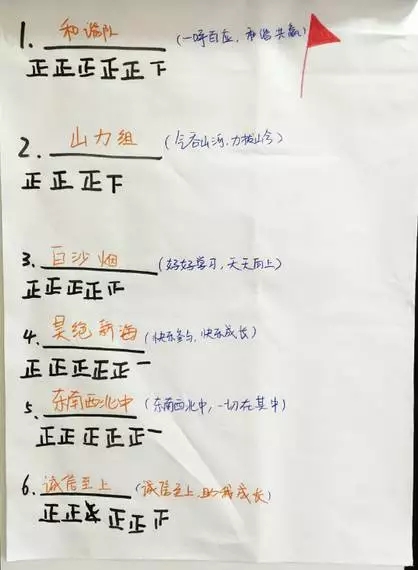 1. 和谐队 (一呼百应, 和谐共赢)
正正正正正下
2. 山力组 (气吞山河, 力拔山兮)
正正正下
3. 白沙烟 (好好学习, 天天向上)
正正正正
4. (快乐参与, 快乐成长)
正正正正正一
5. 东南西北中 (东南西北中, 一切在其中)
正正正正正一
6. 诚信至上 (诚信至上, 助我成长)
正正正正